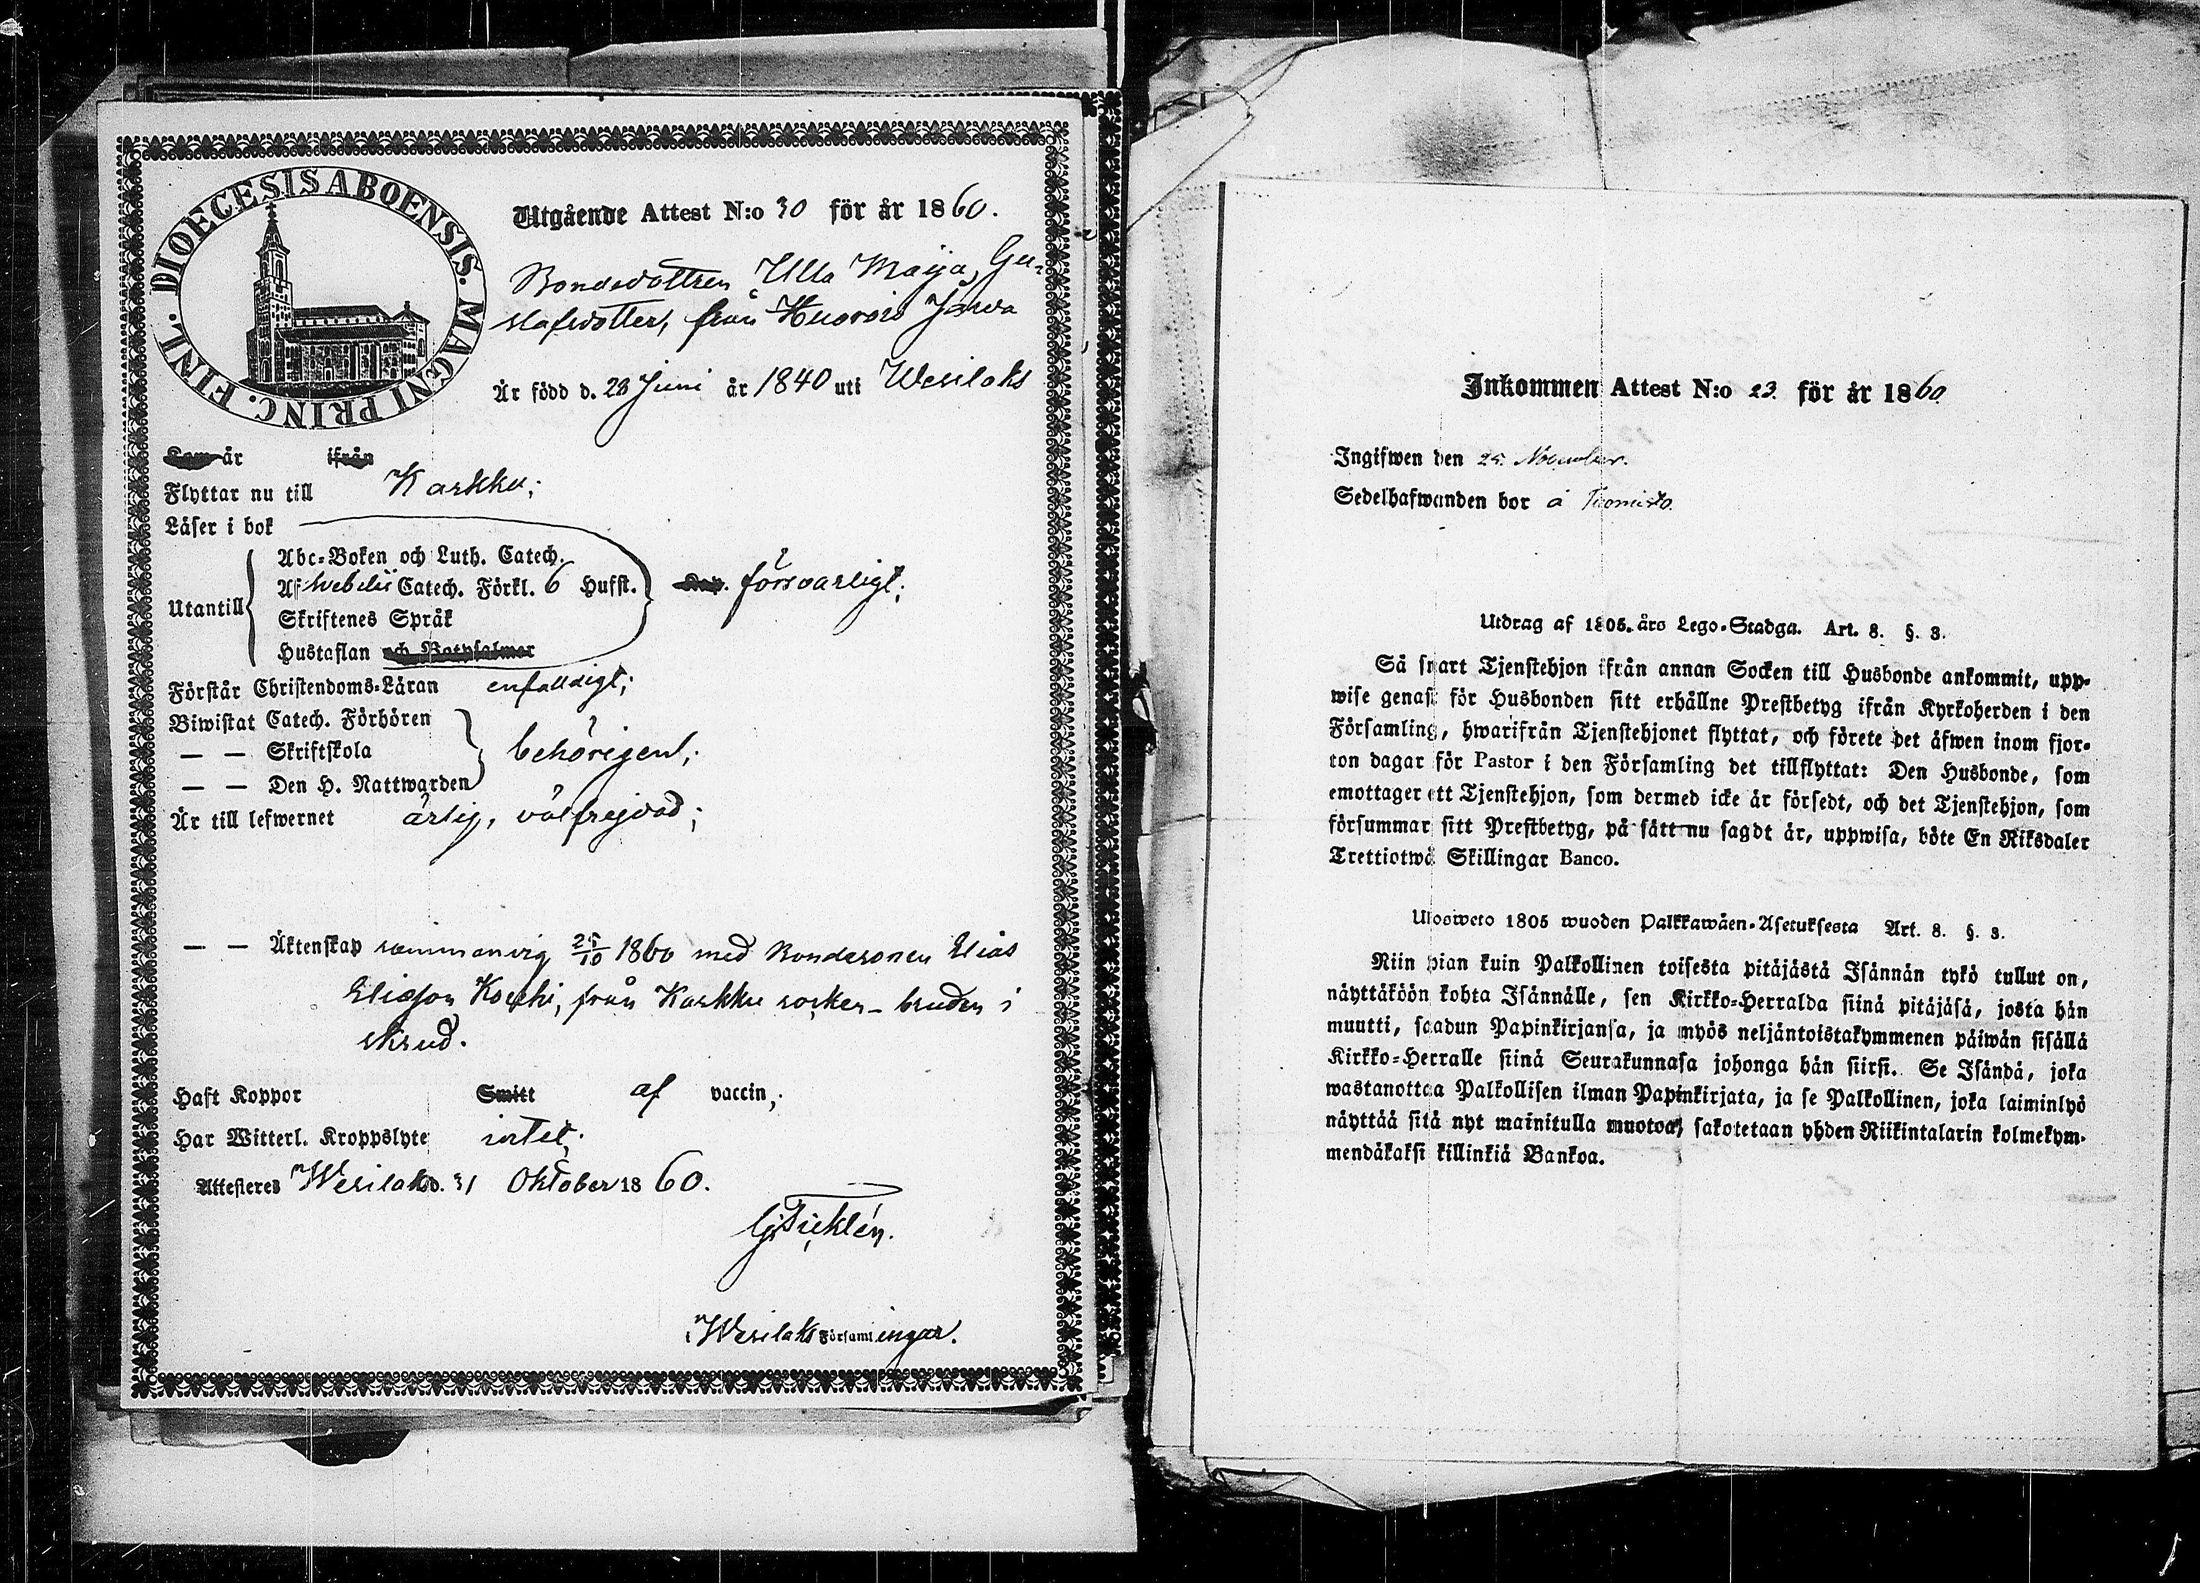 DIOECESIS ABOENSIS. MAGNI PRINC. FINL.
Utgående Attest N:o 30 för år 1860.
Bondedottren Ulla Maija Gu-
stafsdotter, från Kuorois Jarva
Är född d. 23 Juni år 1840 uti Wesilaks
Kom år ifrån
Flyttar nu till Karkku;
Läser i bok
Abc-Boken och Luth. Catech.
Af Swebelii Catech. Förkl. 6 Hufst. försvarligt;
Utantill
Skriftenes Språk
Hustaflan och Botpsalmer
Förstår Christendoms-Läran enfaldigt;
Biwistat Catech. Förhören
— — Skriftskola behörigent;
— — Den H. Nattwarden
Är till lefwernet ärlig, välfrejdad;
— — Äktenskap sammanvig 25/10 1860 med Bondesonen Elias
Eliasson, från Karkku socken - bruden i
skrud.
Haft Koppor Smitt af vaccin;
Har Witterl. Kroppslyte intet;
Attesteras Wesilaks d. 31 Oktober 1860.
Wesilaks Församlingar.
Inkommen Attest N:o 23 för år 1860
Ingifwen den 25. November.
Sedelhafwanden bor å Tuomisto.
Utdrag af 1805. års Lego-Stadga. Art. 8. §. 3.
Så snart Tjenstehjon ifrån annan Socken till Husbonde ankommit, upp-
wise genast för Husbonden sitt erhållne Prestbetyg ifrån Kyrkoherden i den
Församling, hwarifrån Tjenstehjonet flyttat, och förete det äfwen inom fjor-
ton dagar för Pastor i den Församling det tillflyttat: Den Husbonde, som
emottager ett Tjenstehjon, som dermed icke är försedt, och det Tjenstehjon, som
försummar sitt Prestbetyg, på sätt nu sagdt är, uppwisa, böte En Riksdaler
Trettiotwå Skillingar Banco.
Ulosweto 1805 wuoden Palkkawäen-Asetuksesta Art. 8. §. 3.
Niin pian kuin Palkollinen toisesta pitäjästä Isännän tykö tullut on,
näyttäköön kohta Isännälle, sen Kirkko-Herralda siinä pitäjäsä, josta hän
muutti, saadun Papinkirjansa, ja myös neljäntoistakymmenen päiwän sisällä
Kirkko-Herralle siinä Seurakunnasa johonga hän siirsi. Se Isändä, joka
wastanottaa Palkollisen ilman Papinkirjata, ja se Palkollinen, joka laiminlyö
näyttää sitä nyt mainitulla muotoa, sakotetaan yhden Riikintalarin kolmekym-
mendäkaksi killinkiä Bankoa.